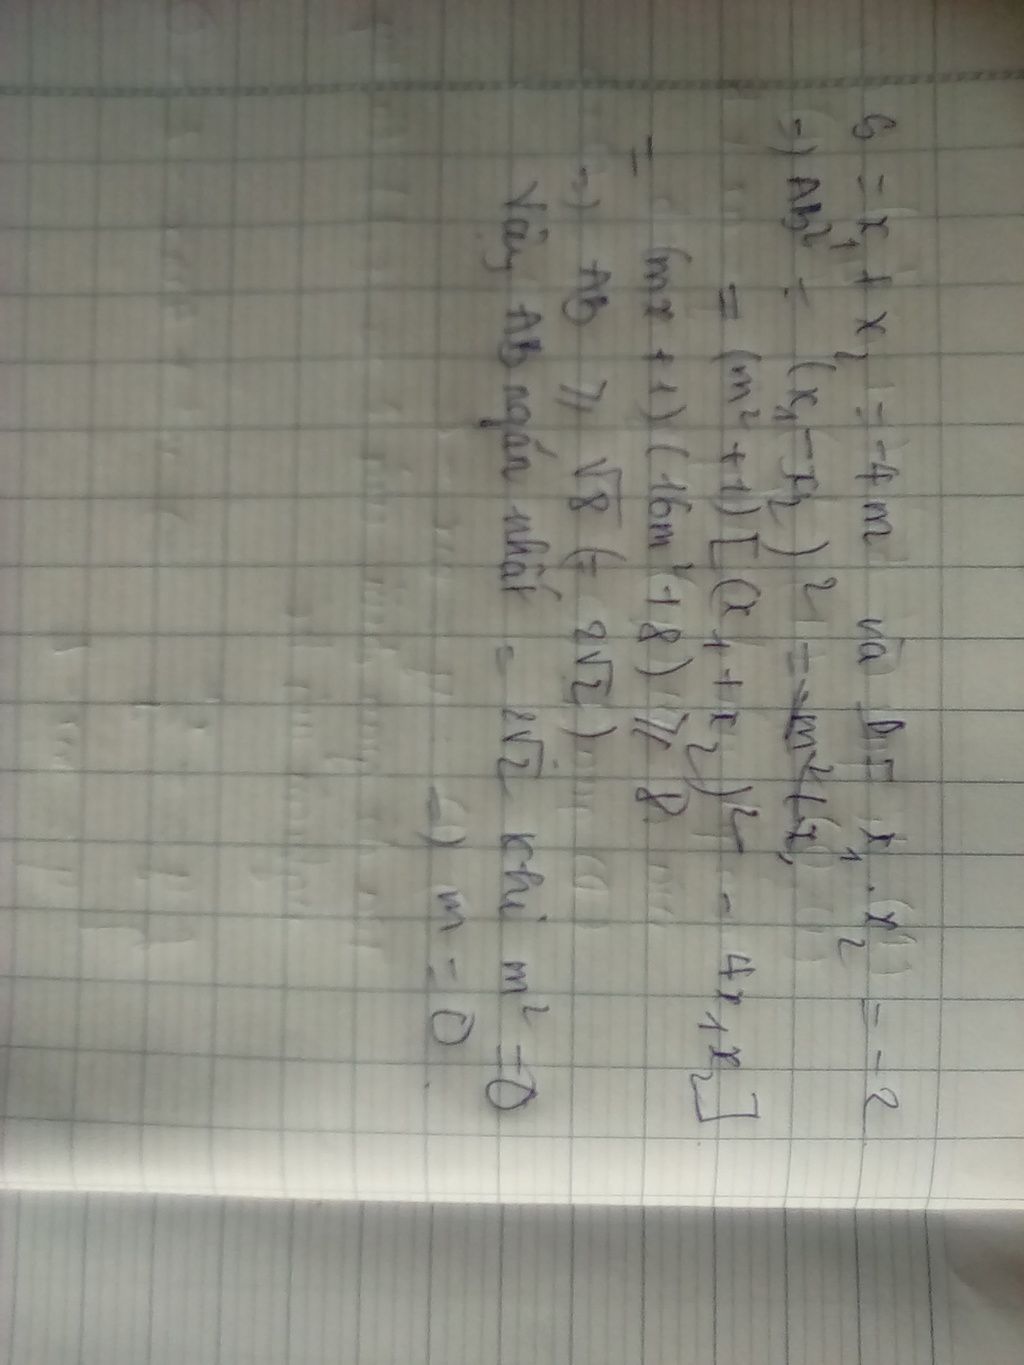 S = x₁ + x₂ = -4m và P = x₁ . x₂ = -2
=) AB² = (x₁ - x₂)² = m² + (x₁
= (m² + 1) [(x₁ + x₂)² - 4x₁x₂]
= (mx + 1) (16m² + 8) ⩾ 8
=) AB ⩾ √8 (= 2√2)
Vậy AB ngắn nhất = 2√2 khi m² = 0
=) m = 0